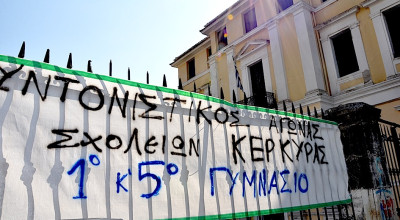 ΥΝΤΟΝΙΣΤΙΚΟΣ ΑΓΩΝΑΣ
ΣΧΟΛΕΙΩΝ ΚΕΡΚΥΡΑΣ
1º κ 5º ΓΥΜΝΑΣΙΟ